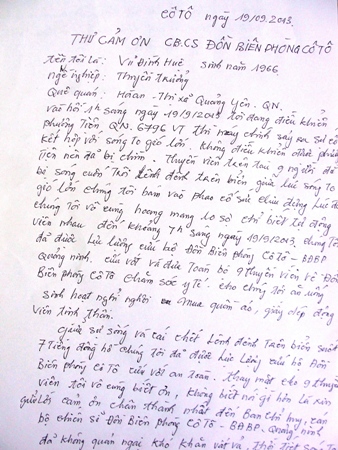 CÔ TÔ ngày 19/09.2013.
THƯ CẢM ƠN CB.CS ĐỒN BIÊN PHÒNG CÔ TÔ
tên tôi là: Vũ Đình Huê sinh năm 1966
ngề nghiệp: Thuyền Trưởng
Quê quán: Hà an - Thị xã Quảng Yên - QN.
vào hồi 1h sáng ngày 19/9/2013 tôi đang điều khiển
phương Tiện QN. 6796 VT thì máy chính sảy ra sự cố
kết hợp với sóng to gió lớn, không điều khiển được phương
Tiện nên đã bị chìm. Thuyền viên trên tàu 9 người đã
bị sóng cuốn Trôi lênh đênh trên biển, giữa lúc sóng to
gió lớn chúng tôi bám vào phao cứu sinh lúc đó
chúng tôi vô cùng hoang mang lo sợ chỉ biết tự động
viên nhau đến khoảng 7h sáng ngày 19/9/2013, chúng Tôi
đã được lực lượng cứu hộ Đồn Biên phòng Cô Tô - BĐBP
Quảng ninh. cứu vớt và đưa Toàn bộ 9 Thuyền viên về Đồn
Biên phòng Cô Tô chăm sóc y tế. cho chúng tôi ăn uống
sinh hoạt nghỉ ngơi mua quần áo, giầy dép động
viên tinh thần.
Giữa sự sống và cái chết lênh đênh trên biển suốt
7 Tiếng đồng hồ chúng tôi đã được lực lượng cứu hộ Đồn
Biên phòng Cô Tô cứu vớt an toàn. Thay mặt cho 9 thuyền
viên tôi vô cùng biết ơn, không biết nói gì hơn là xin
gửi lời cảm ơn chân thành nhất đến Ban chỉ huy, cán
bộ chiến sĩ Đồn Biên phòng Cô Tô - BĐBP. Quảng ninh
đã không quản ngại khó khăn vất vả, thời tiết